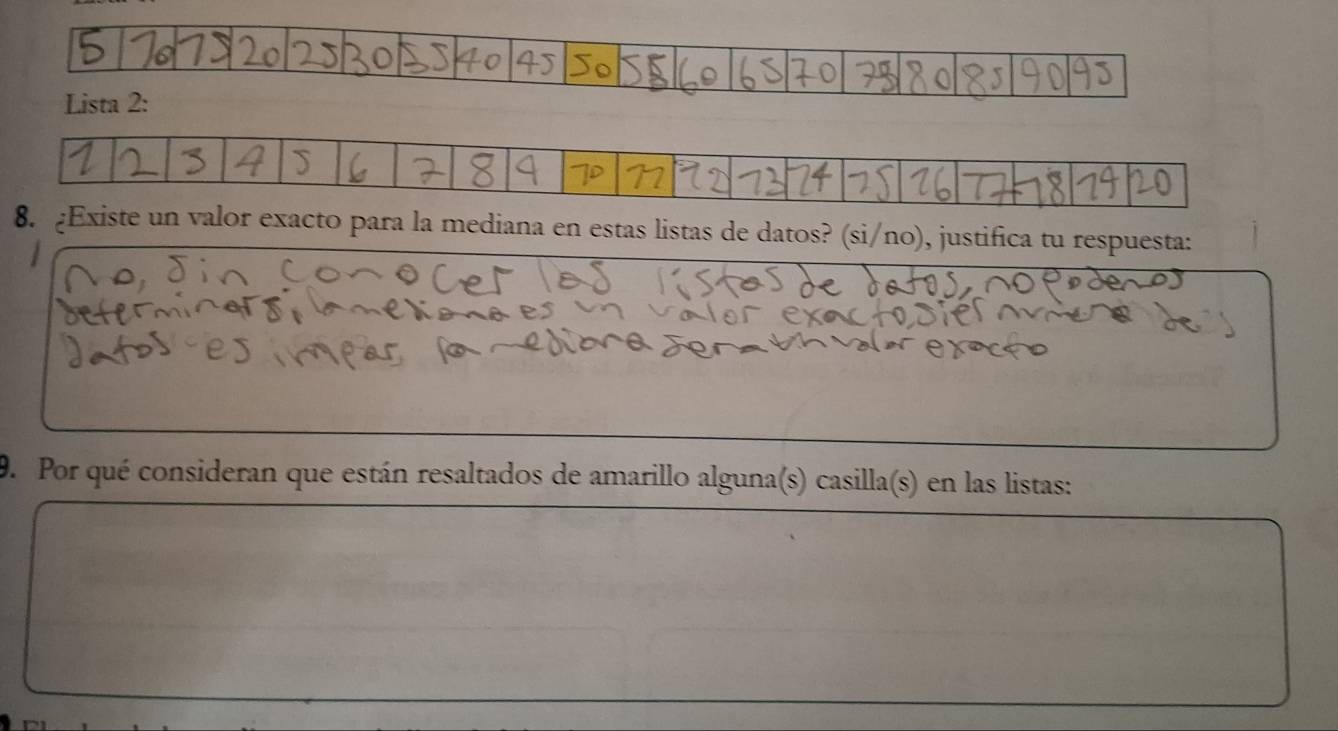 5 10 15 20 25 30 35 40 45 50 55 60 65 70 75 80 85 90 95
Lista 2:
1 2 3 4 5 6 7 8 9 10 11 12 13 14 15 16 17 18 19 20
8. ¿Existe un valor exacto para la mediana en estas listas de datos? (si/no), justifica tu respuesta:
No, sin conocer las listas de datos, no podemos
determinar si la mediana es un valor exacto, si el numero de
datos es impar, la mediana sera un valor exacto
9. Por qué consideran que están resaltados de amarillo alguna(s) casilla(s) en las listas: